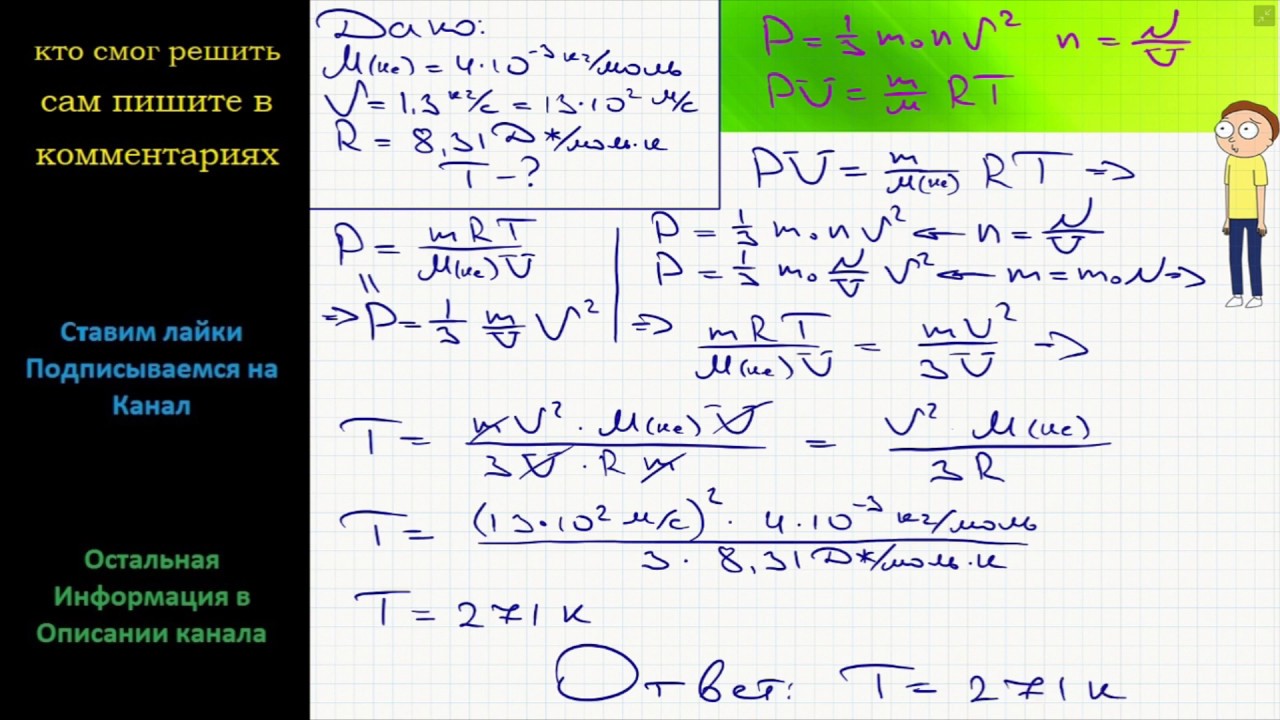 кто смог решить
сам пишите в
комментариях
Ставим лайки
Подписываемся на
Канал
Остальная
Информация в
Описании канала
Дано:
M(He) = 4·10⁻³ кг/моль
V = 1,3 кг/с = 13·10² м/с
R = 8,31 Дж/моль·к
T - ?
P = 1/3 m₀ n V² n = N/V
PV = m/M RT
PV = m/M(He) RT =>
P = mRT/M(He)V
=> P = 1/3 m/V V²
P = 1/3 m₀ n V² ← n = N/V
P = 1/3 m₀ N/V V² ← m = m₀N =>
=> mRT/M(He)V = mV²/3V ->
T = mV² · M(He)V / 3V · Rm = V² · M(He) / 3R
T = (13·10² м/с)² · 4·10⁻³ кг/моль / 3 · 8,31 Дж/моль·к
T = 271 к
Ответ: T = 271 к